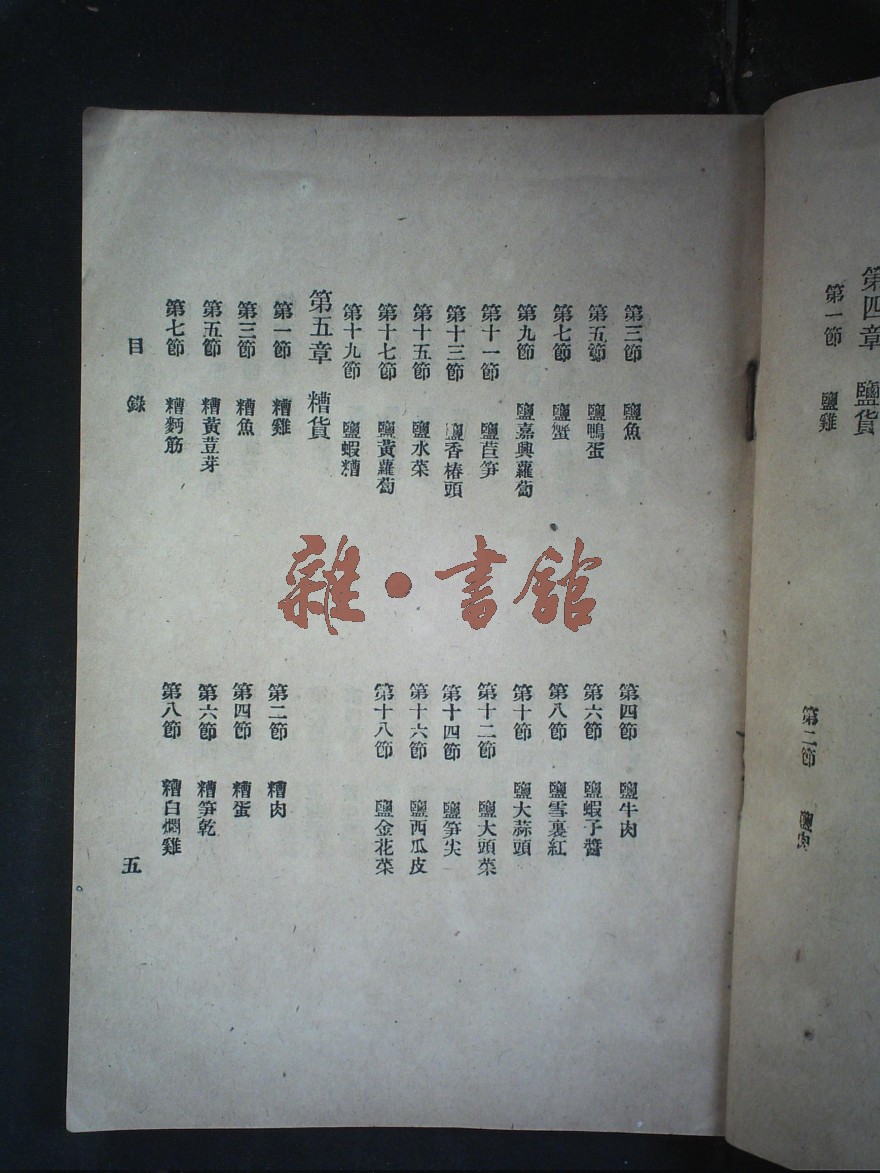 第四章 鹽貨
第一節 鹽雞
第二節 鹽肉
第三節 鹽魚
第四節 鹽牛肉
第五節 鹽鴨蛋
第六節 鹽蝦子醬
第七節 鹽蟹
第八節 鹽雪裏紅
第九節 鹽嘉興蘿蔔
第十節 鹽大蒜頭
第十一節 鹽苣笋
第十二節 鹽大頭菜
第十三節 鹽香椿頭
第十四節 鹽笋尖
第十五節 鹽水菜
第十六節 鹽西瓜皮
第十七節 鹽黃蘿蔔
第十八節 鹽金花菜
第十九節 鹽蝦糟
第五章 糟貨
第一節 糟雞
第二節 糟肉
第三節 糟魚
第四節 糟蛋
第五節 糟黃荳芽
第六節 糟笋乾
第七節 糟麪筋
第八節 糟白燜雞
目錄
五
雜·書館